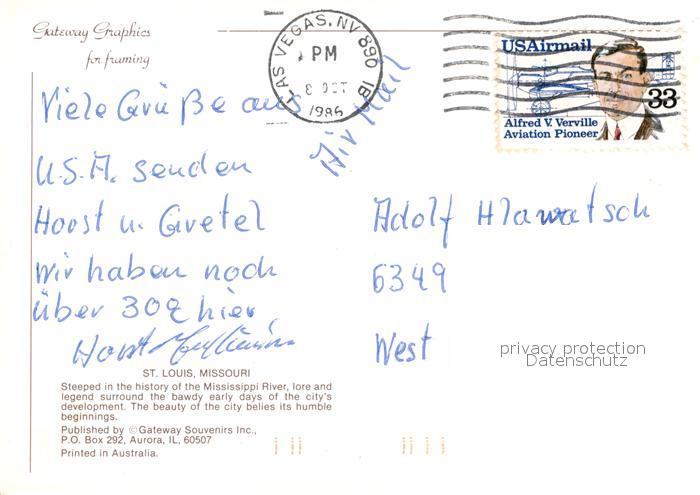 Gateway Graphics
for framing
LAS VEGAS, NV 890
PM
8 OCT
1986
USAirmail
33
Alfred V. Verville
Aviation Pioneer
Air Mail
Viele Grüße aus
U.S.A. senden
Horst u. Gretel
wir haben noch
über 30° hier
Horst
Adolf Hlawatsch
6349
West
privacy protection
Datenschutz
ST. LOUIS, MISSOURI
Steeped in the history of the Mississippi River, lore and
legend surround the bawdy early days of the city's
development. The beauty of the city belies its humble
beginnings.
Published by ©Gateway Souvenirs Inc.,
P.O. Box 292, Aurora, IL, 60507
Printed in Australia.